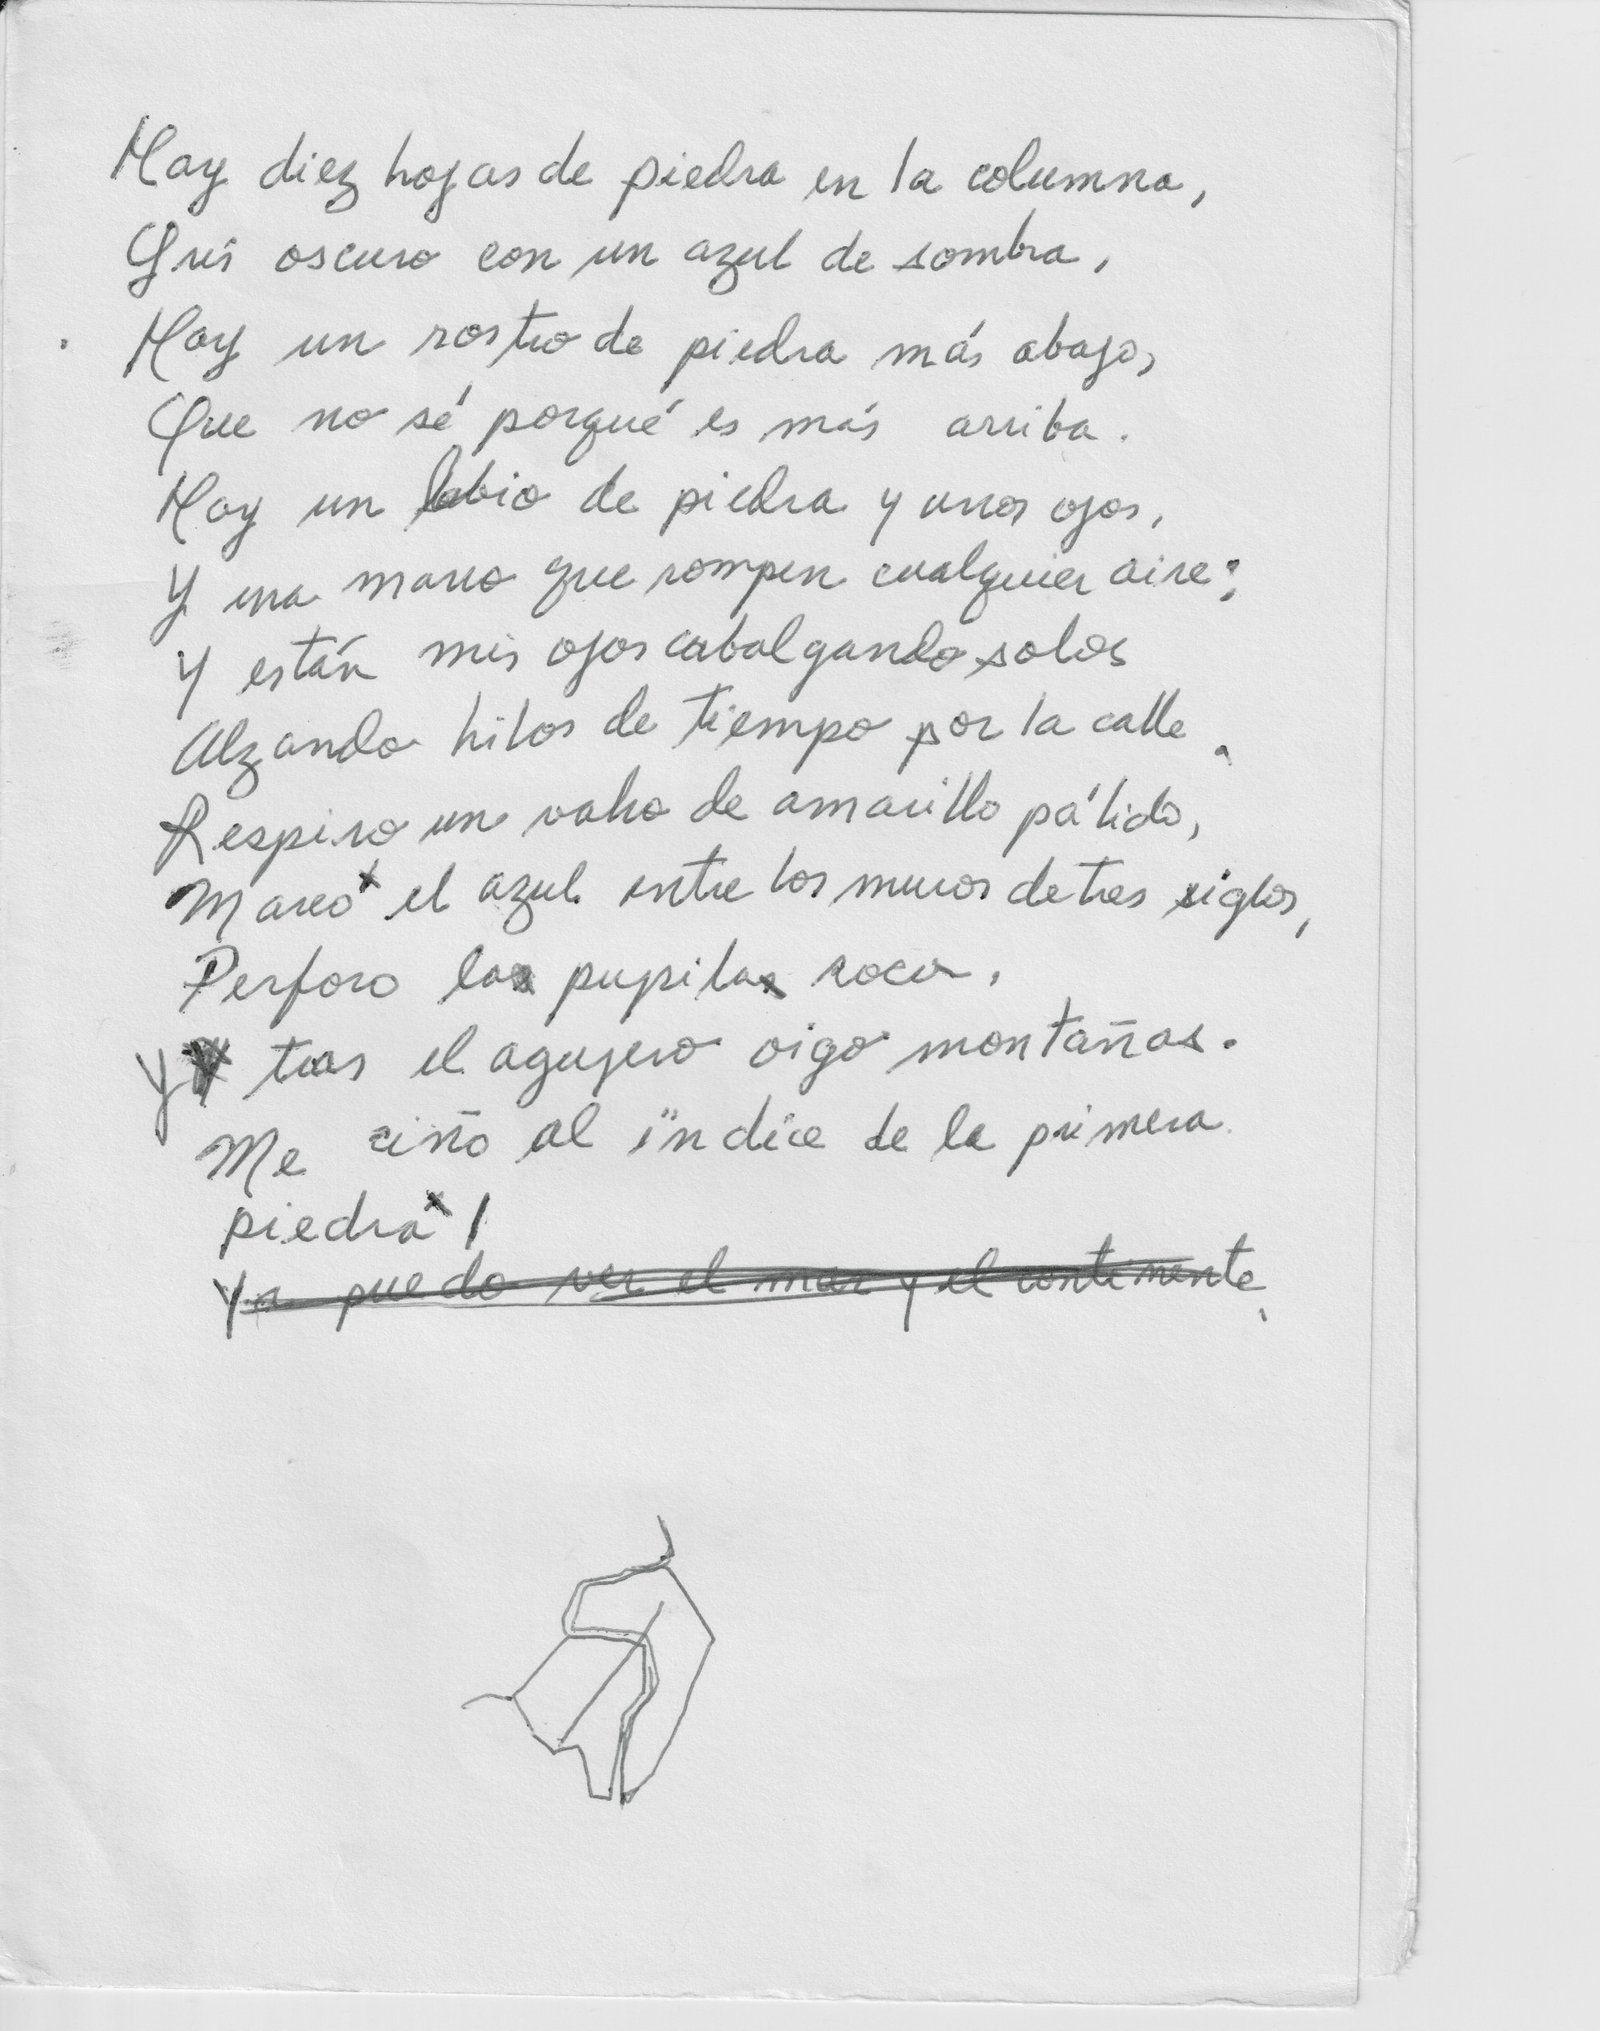 Hay diez hojas de piedra en la columna,
Gris oscuro con un azul de sombra,
Hay un rostro de piedra más abajo,
Que no sé porqué es más arriba.
Hay un labio de piedra y unos ojos,
Y una mano que rompen cualquier aire;
Y están mis ojos cabalgando solos
Alzando hilos de tiempo por la calle.
Respiro un vaho de amarillo pálido,
Mareo el azul entre los muros de tres siglos,
Perforo la pupila roca,
Y tras el agujero oigo montañas.
Me ciño al índice de la primera
piedra
Ya puedo ver el mar y el continente,